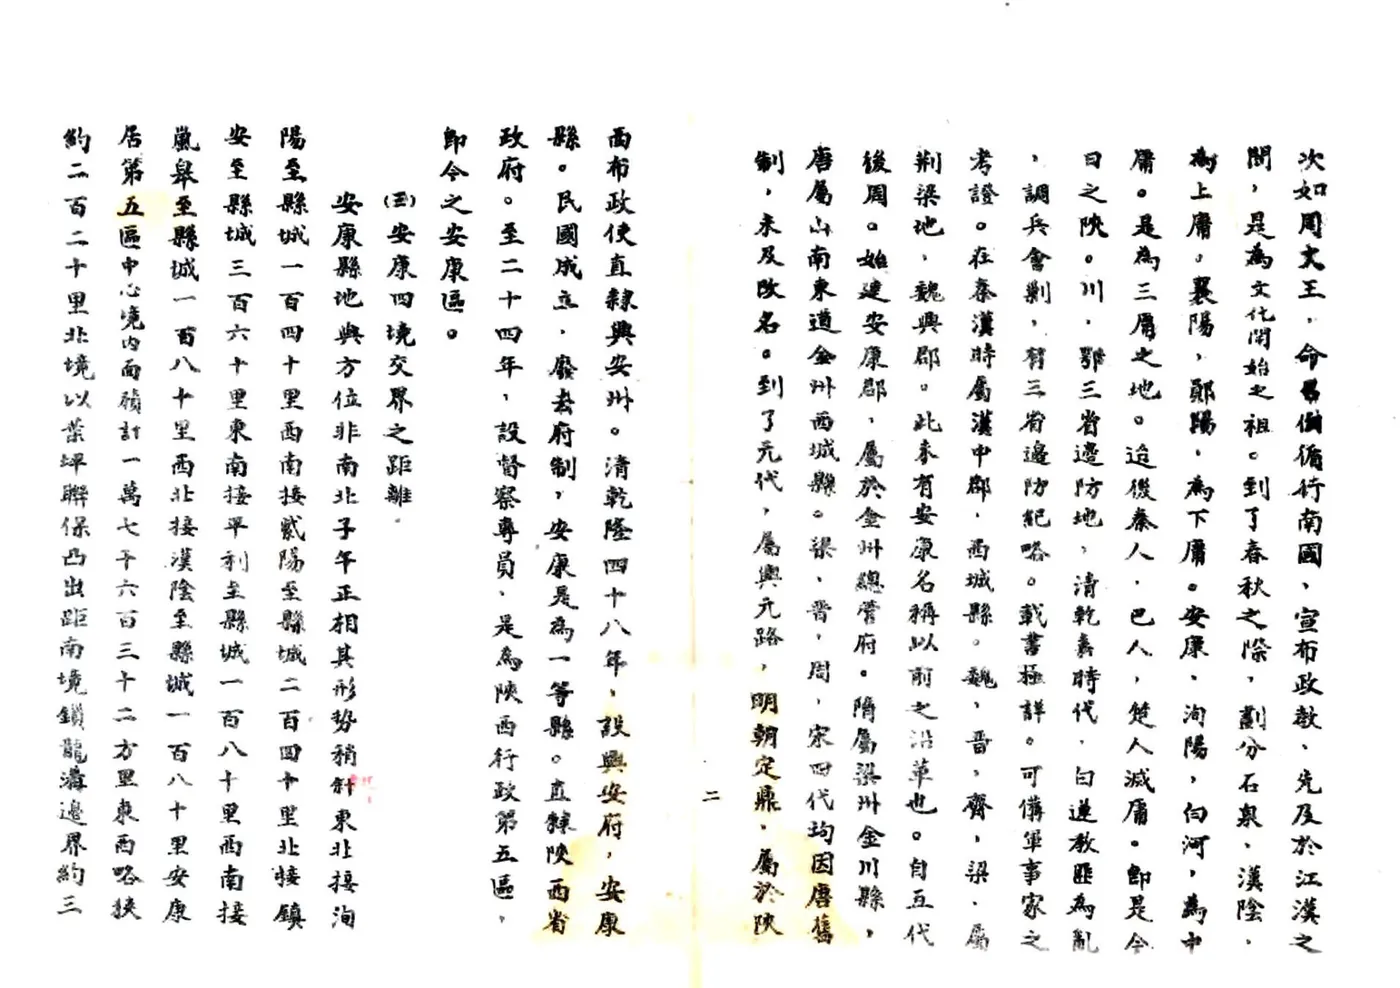 次如周文王，命召伯循行南國，宣布政教、先及於江漢之
間，是為文化開始之祖。到了春秋之際，劃分石泉、漢陰，
為上庸。襄陽，鄖陽，為下庸。安康、洵陽，白河，為中
庸。是為三庸之地。迨後秦人，巴人，楚人滅庸。即是今
日之陝。川，鄂三省邊防地，清乾嘉時代，白蓮教匪為亂
，調兵會剿，有三省邊防紀略。載書極詳。可備軍事家之
考證。在秦漢時屬漢中郡，西城縣。魏，晋，齊，梁，屬
荆梁地，魏興郡。此未有安康名稱以前之沿革也。自五代
後周。始建安康郡，屬於金州總管府。隋屬梁州金川縣，
唐屬山南東道金州西城縣。梁，晋，周，宋四代均因唐舊
制，未及改名。到了元代，屬興元路，明朝定鼎，屬於陝
二
西布政使直隸興安州。清乾隆四十八年，設興安府，安康
縣。民國成立，廢去府制，安康是為一等縣。直隸陝西省
政府。至二十四年，設督察專員，是為陝西行政第五區，
即今之安康區。
(三)安康四境交界之距離。
安康縣地輿方位非南北子午正相其形勢稍斜東北接洵
陽至縣城一百四十里西南接紫陽至縣城二百四十里北接鎮
安至縣城三百六十里東南接平利至縣城一百八十里西南接
嵐皋至縣城一百八十里西北接漢陰至縣城一百八十里安康
居第五區中心境內面積計一萬七千六百三十二方里東西略狹
約二百二十里北境以葉坪聯保凸出距南境鎖龍溝邊界約三